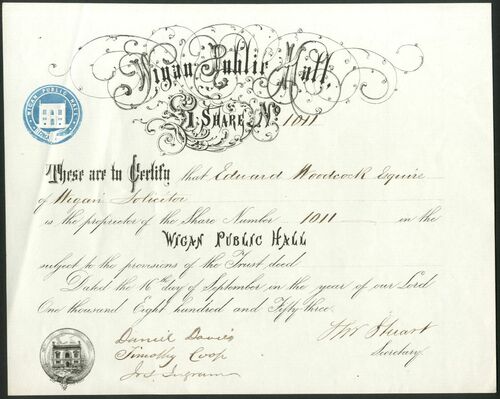 Wigan Public Hall,
1 Share, No 1011
WIGAN PUBLIC HALL
These are to Certify that Edward Woodcock Esquire
of Wigan Solicitor
is the proprietor of the Share Number 1011 in the
WIGAN PUBLIC HALL
subject to the provisions of the Trust deed.
Dated the 16th day of September in the year of our Lord
One thousand Eight hundred and Fifty three.
Daniel Davies
Timothy Coop
Jos. Ingram
Stuart
Secretary.